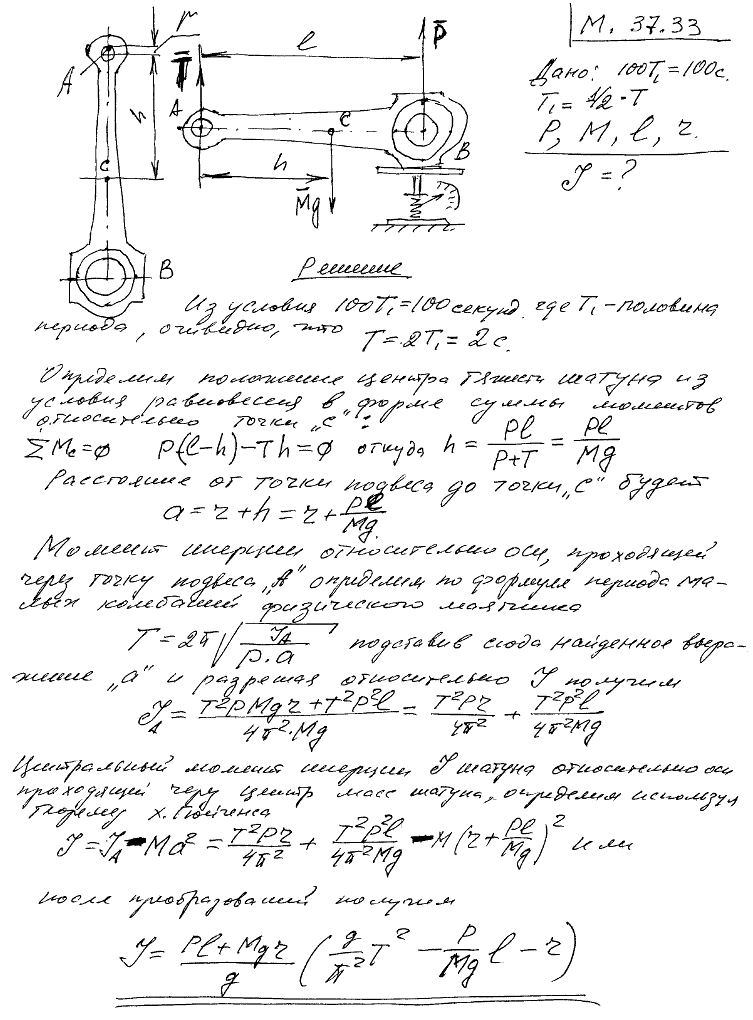 М. 37.33
r
l
P̄
T̄
A
A
h
h
C
C
B
B
M̄g
Дано: 100T₁ = 100 с.
T₁ = 1/2 · T
P, M, l, r.
J = ?
Решение
Из условия 100T₁ = 100 секунд. где T₁ - половина
периода, очевидно, что T = 2T₁ = 2 с.
Определим положение центра тяжести шатуна из
условия равновесия в форме суммы моментов
относительно точки „C“:
ΣMc = 0 P(l-h) - Th = 0 откуда h = Pl/(P+T) = Pl/Mg
Расстояние от точки подвеса до точки „C“ будет
a = r + h = r + Pl/Mg.
Момент инерции относительно оси, проходящей
через точку подвеса „A“ определим по формуле периода ма-
лых колебаний физического маятника
T = 2π√(J_A/(p·a)) подставив сюда найденное выра-
жение „a“ и разрешая относительно J получим
J_A = (T²PMgr + T²P²l)/(4π²·Mg) = T²Pr/4π² + T²P²l/4π²Mg
Центральный момент инерции J шатуна относительно оси
проходящей через центр масс шатуна, определим используя
теорему Х. Гюйгенса
J = J_A - Ma² = T²Pr/4π² + T²P²l/4π²Mg - M(r + Pl/Mg)² или
после преобразований получим
J = (Pl + Mgr)/g (g/π² T² - P/Mg l - r)